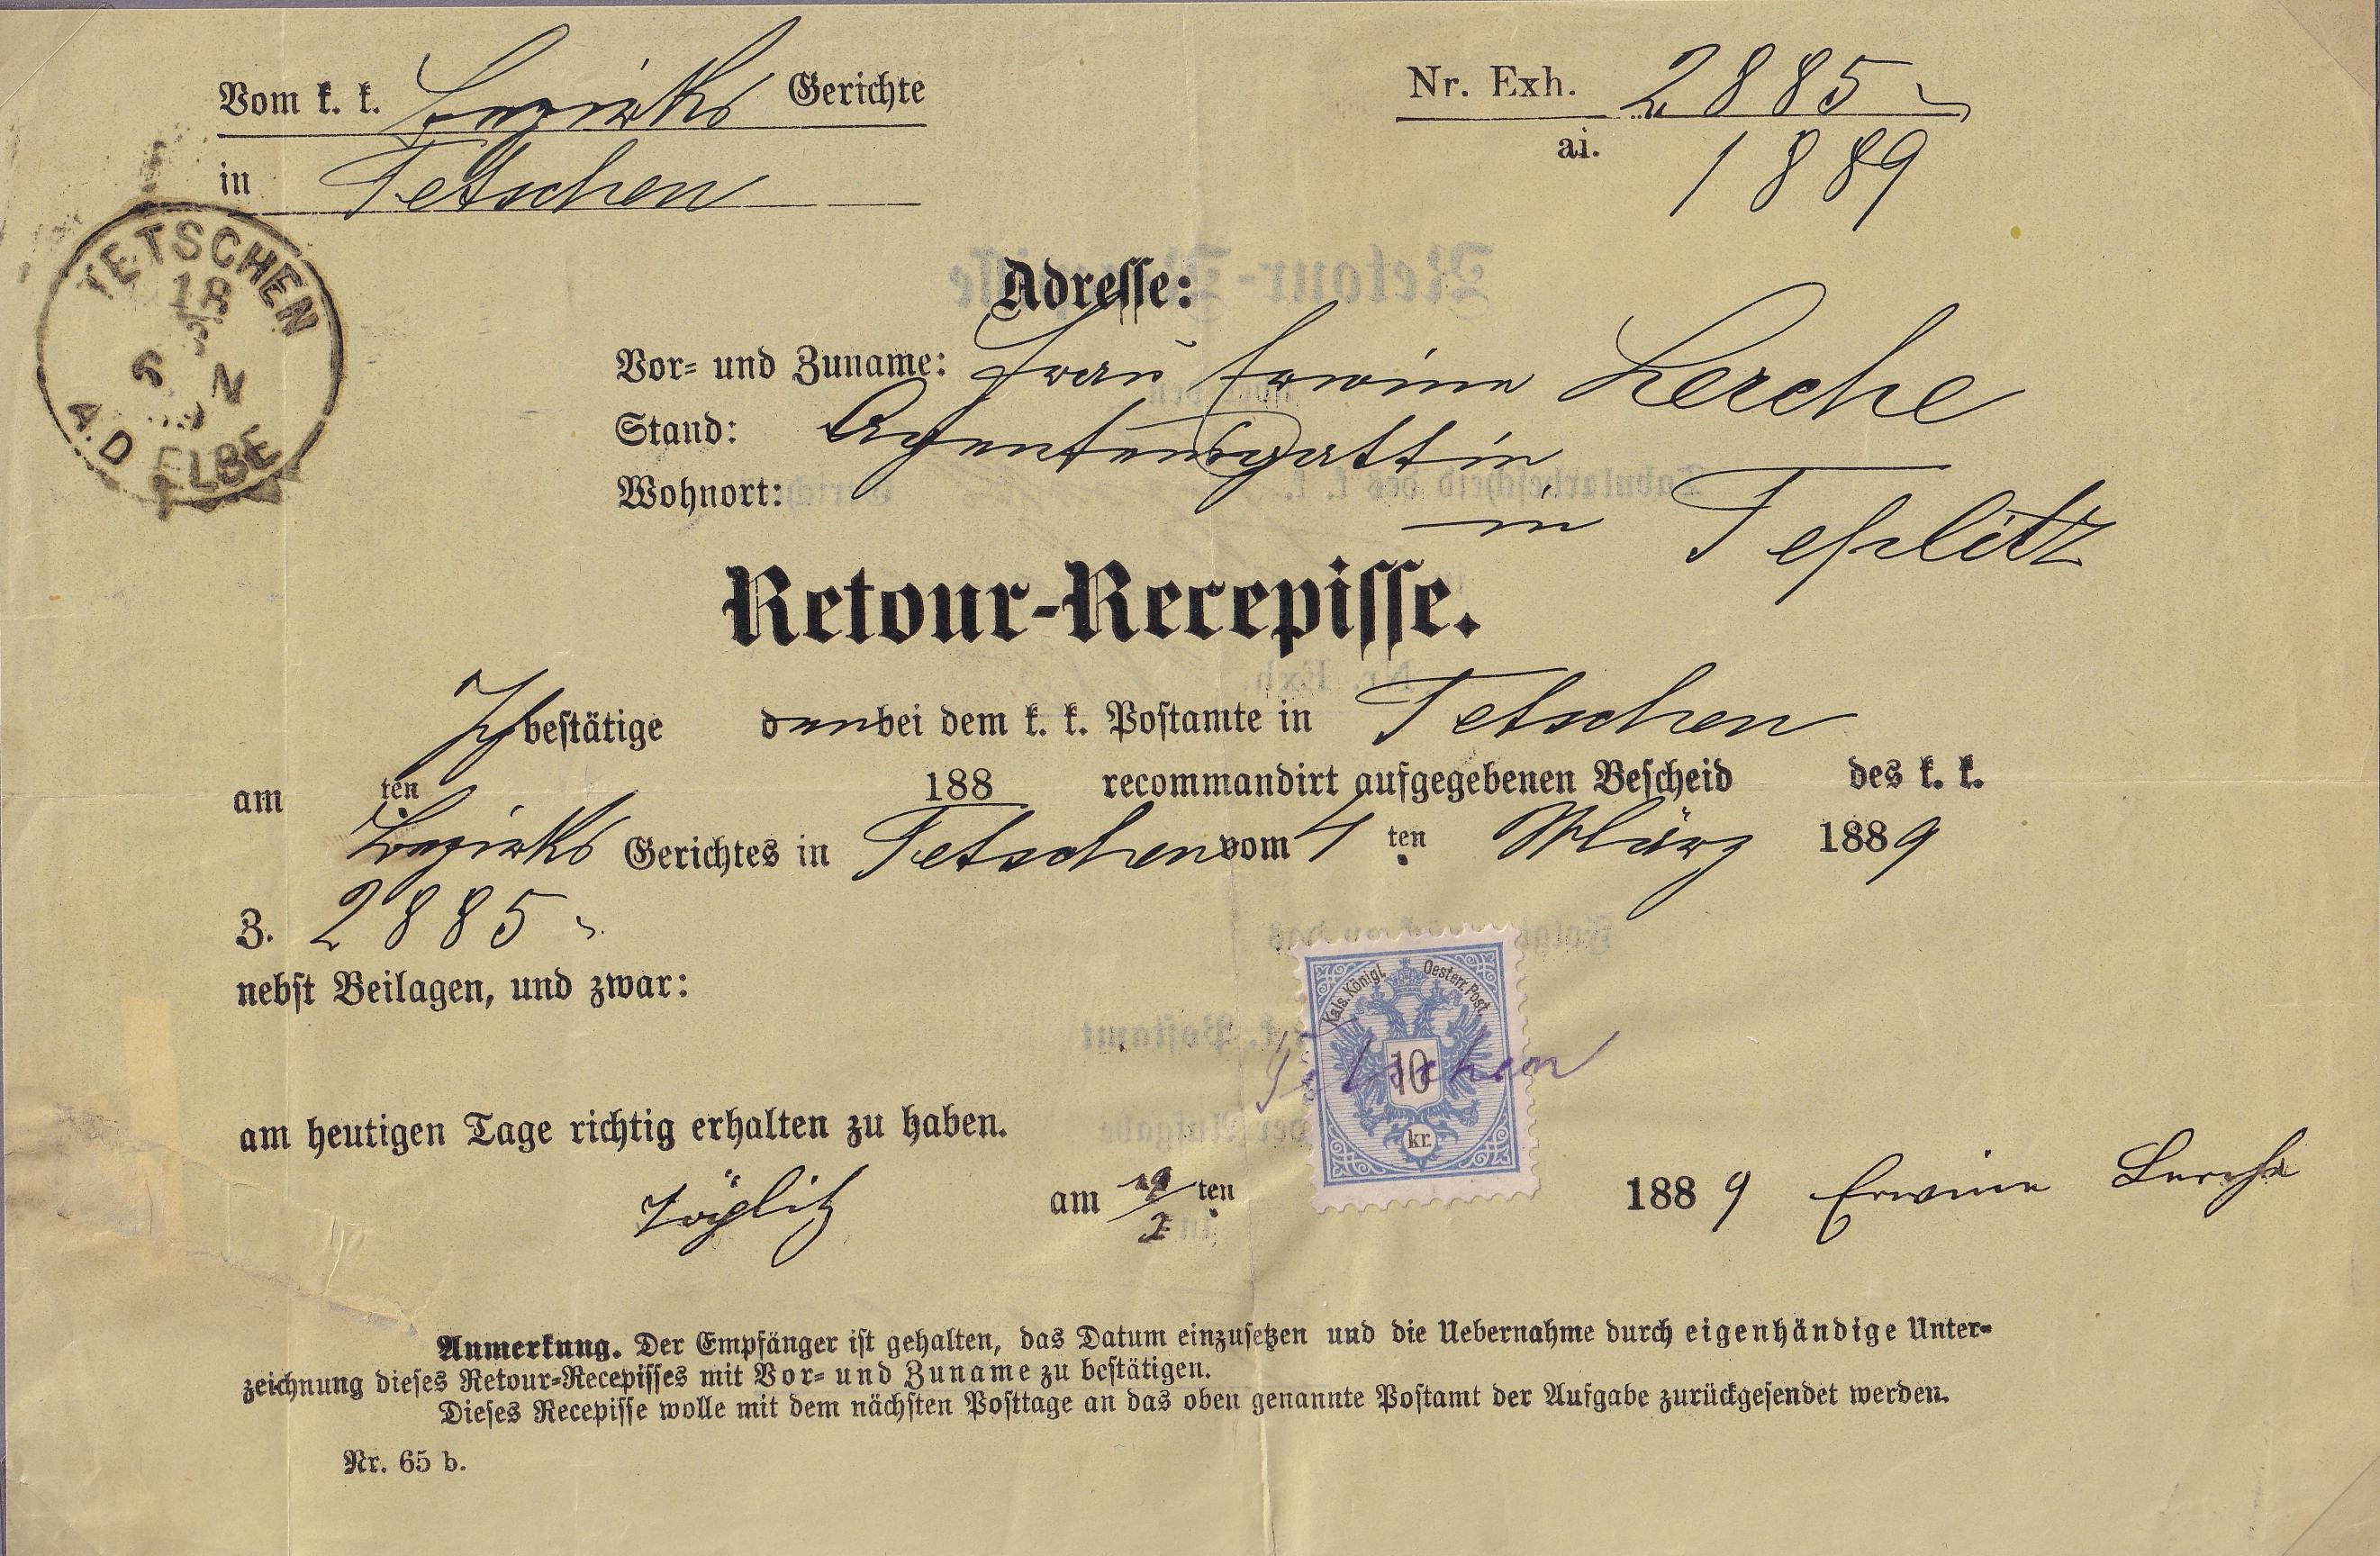 Vom k. k. Bezirks Gerichte
in Tetschen
Nr. Exh. 2885
ai. 1889
TETSCHEN
18
3
6 N
A.D. ELBE
Adresse:
Vor- und Zuname: Frau Erwine Lerche
Stand: Agentensgattin
Wohnort: in Teplitz
Retour-Recepisse.
Ich bestätige den bei dem k. k. Postamte in Tetschen
am ten 188 recommandirt aufgegebenen Bescheid des k. k.
Bezirks Gerichtes in Tetschen vom 4 ten März 1889
Z. 2885
nebst Beilagen, und zwar:
Kais. Königl. Oesterr. Post.
10
kr.
Tetschen
am heutigen Tage richtig erhalten zu haben.
Töplitz am 19/3 ten 1889 Erwine Lerche
Anmerkung. Der Empfänger ist gehalten, das Datum einzusetzen und die Uebernahme durch eigenhändige Unter-
zeichnung dieses Retour-Recepisses mit Vor- und Zuname zu bestätigen.
Dieses Recepisse wolle mit dem nächsten Posttage an das oben genannte Postamt der Aufgabe zurückgesendet werden.
Nr. 65 b.